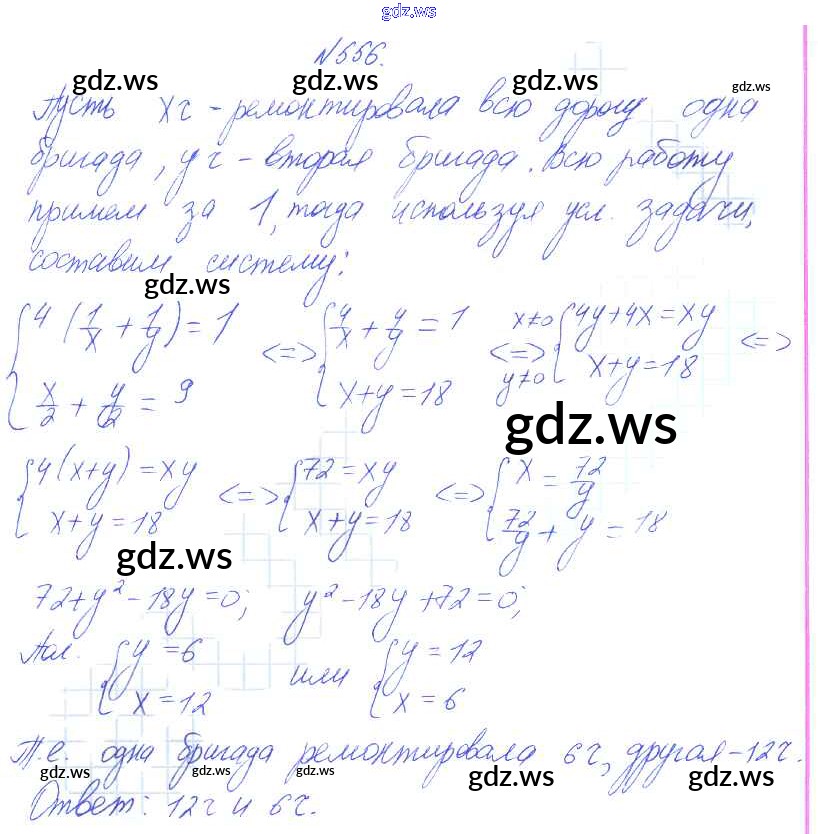 gdz.ws
№556.
gdz.ws gdz.ws gdz.ws
Пусть x ч - ремонтировала всю дорогу одна
бригада, y ч - вторая бригада. Всю работу
примем за 1, тогда используя усл. задачи,
составим систему:
gdz.ws
{4(1/x + 1/y) = 1 <=> {4/x + 4/y = 1 x≠0 <=> y≠0 {4y+4x=xy <=>
{x/2 + y/2 = 9 {x+y=18 {x+y=18
gdz.ws
{4(x+y)=xy <=> {72=xy <=> {x = 72/y
{x+y=18 {x+y=18 {72/y + y = 18
gdz.ws
72+y²-18y=0; y²-18y+72=0;
{y=6 или {y=12
{x=12 {x=6
Т.е. одна бригада ремонтировала 6ч, другая-12ч.
gdz.ws gdz.ws gdz.ws gdz.ws gdz.ws
Ответ: 12ч и 6ч.